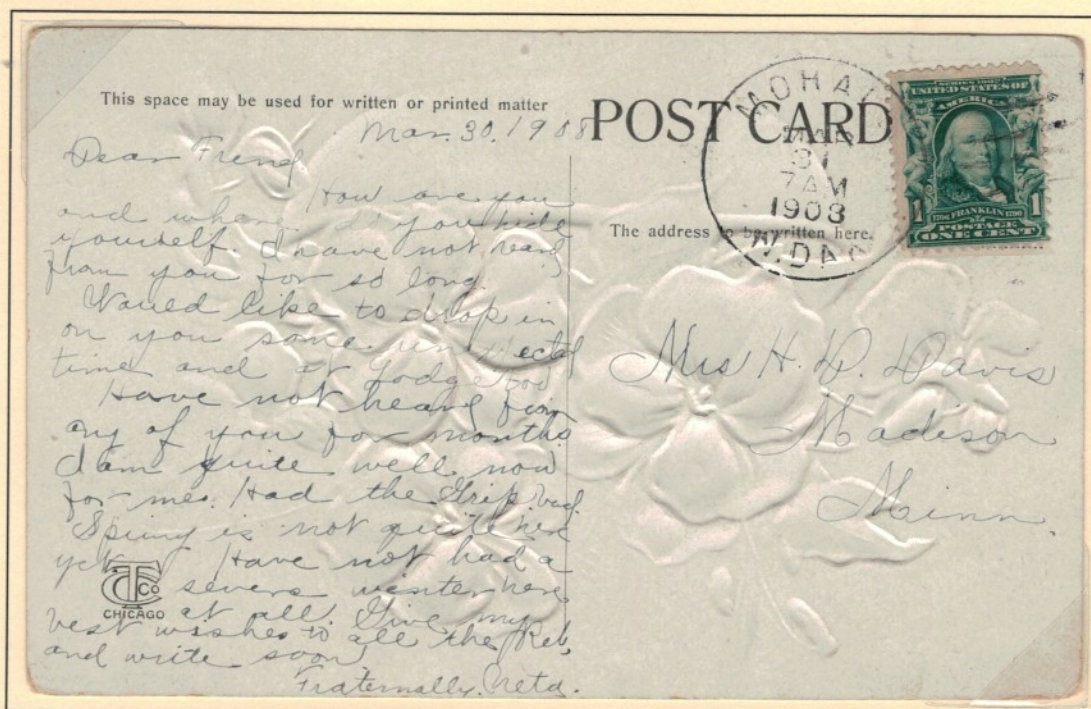 This space may be used for written or printed matter
POST CARD
Mar. 30. 1908
Dear Friend
How are you
and where do you hide
yourself. I have not heard
from you for so long.
Would like to drop in
on you some unexpected
time and at Lodge too
Have not heard from
any of you for months
I am quite well now
for me. Had the Grip bad.
Spring is not quite here
yet. Have not had a
severe winter here
at all. Give my
best wishes to all the Reb,
and write soon
Fraternally.
CTCo
CHICAGO
MOHALL
MAR
31
7AM
1908
N.DAK
SERIES 1902
UNITED STATES OF
AMERICA
1706 FRANKLIN 1790
1 POSTAGE 1
ONE CENT
The address to be written here.
Mrs H. D. Davis
Madison
Minn.